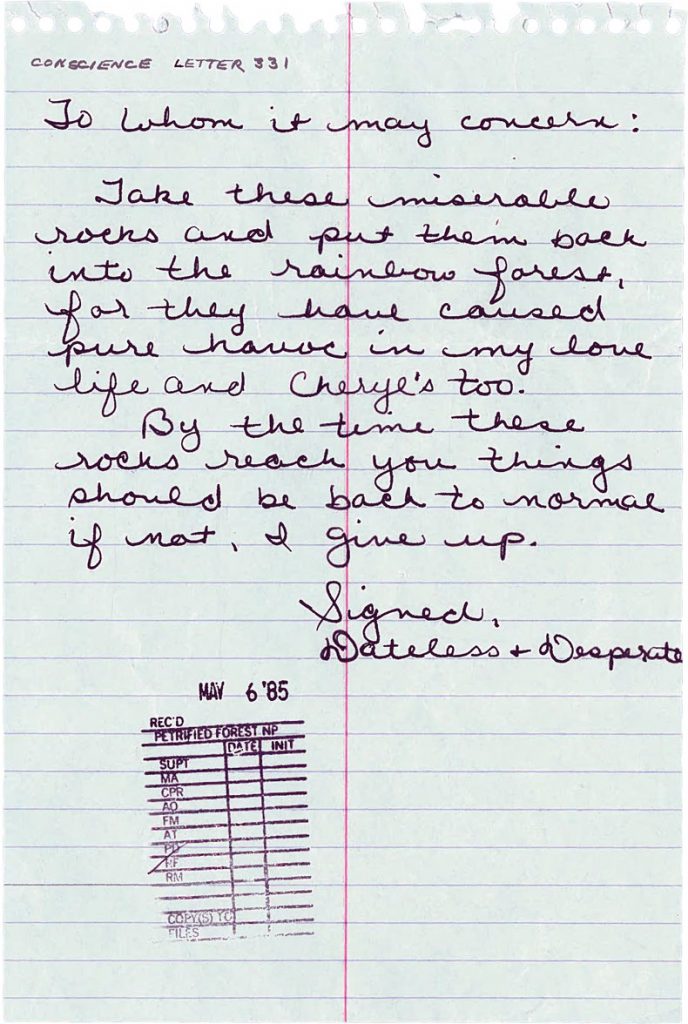 CONSCIENCE LETTER 331
To Whom it may concern:
Take these miserable
rocks and put them back
into the rainbow forest,
for they have caused
pure havoc in my love
life and Cheryl's too.
By the time these
rocks reach you things
should be back to normal
if not, I give up.
Signed,
Dateless + Desperate
MAY 6 '85
REC'D
PETRIFIED FOREST NP
DATE INIT
SUPT
MA
CPR
AO
FM
AT
RF
RM
COPY(S) TO
FILES